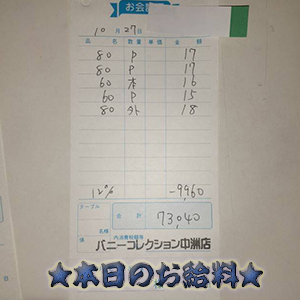 お会計
10月27日
品名 数量 単価 金額
80 P 17
80 P 17
60 本 16
60 P 15
80 外 18
12% -9,960
テーブル
合計 73,040
名様
内消費税額等
バニーコレクション中洲店
★本日のお給料★